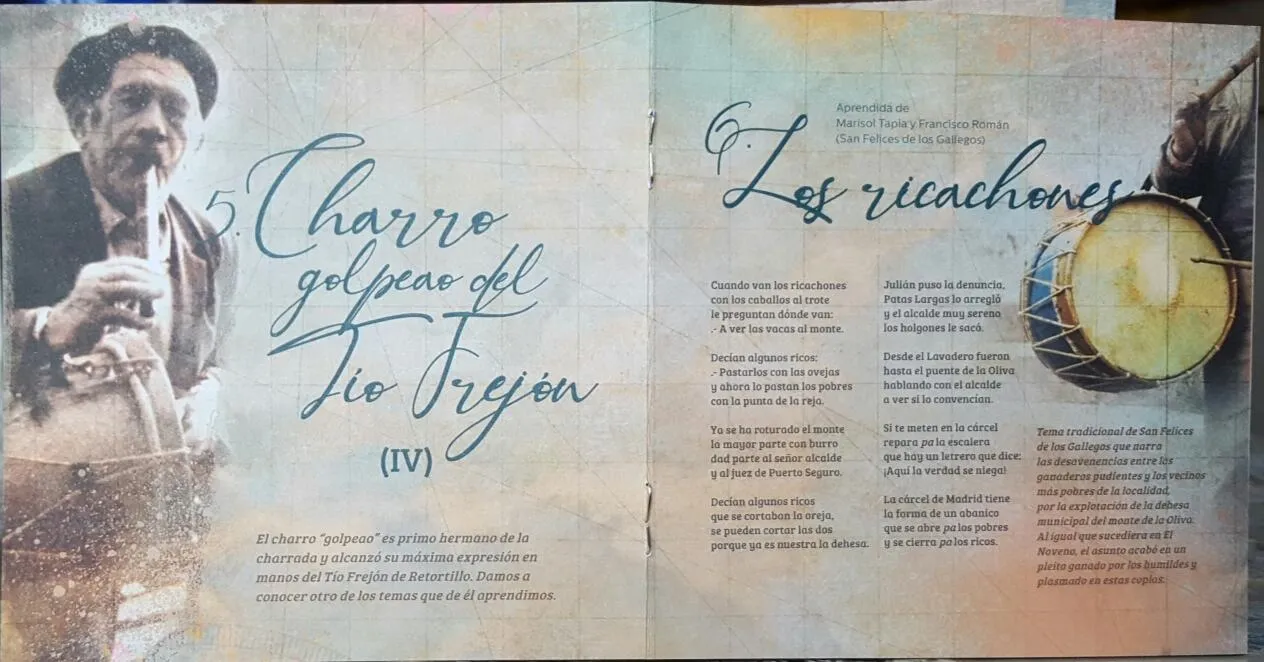 5. Charro
golpeao del
Tío Frejón
(IV)
El charro "golpeao" es primo hermano de la
charrada y alcanzó su máxima expresión en
manos del Tío Frejón de Retortillo. Damos a
conocer otro de los temas que de él aprendimos.
Aprendida de
Marisol Tapia y Francisco Román
(San Felices de los Gallegos)
6. Los ricachones
Cuando van los ricachones
con los caballos al trote
le preguntan dónde van:
.- A ver las vacas al monte.
Decían algunos ricos:
.- Pastarlos con las ovejas
y ahora lo pastan los pobres
con la punta de la reja.
Ya se ha roturado el monte
la mayor parte con burro
dad parte al señor alcalde
y al juez de Puerto Seguro.
Decían algunos ricos
que se cortaban la oreja,
se pueden cortar las dos
porque ya es nuestra la dehesa.
Julián puso la denuncia,
Patas Largas lo arregló
y el alcalde muy sereno
los holgones le sacó.
Desde el Lavadero fueron
hasta el puente de la Oliva
hablando con el alcalde
a ver si lo convencían.
Si te meten en la cárcel
repara pa la escalera
que hay un letrero que dice:
¡Aquí la verdad se niega!
La cárcel de Madrid tiene
la forma de un abanico
que se abre pa los pobres
y se cierra pa los ricos.
Tema tradicional de San Felices
de los Gallegos que narra
las desavenencias entre los
ganaderos pudientes y los vecinos
más pobres de la localidad,
por la explotación de la dehesa
municipal del monte de la Oliva.
Al igual que sucediera en El
Noveno, el asunto acabó en un
pleito ganado por los humildes y
plasmado en estas coplas.